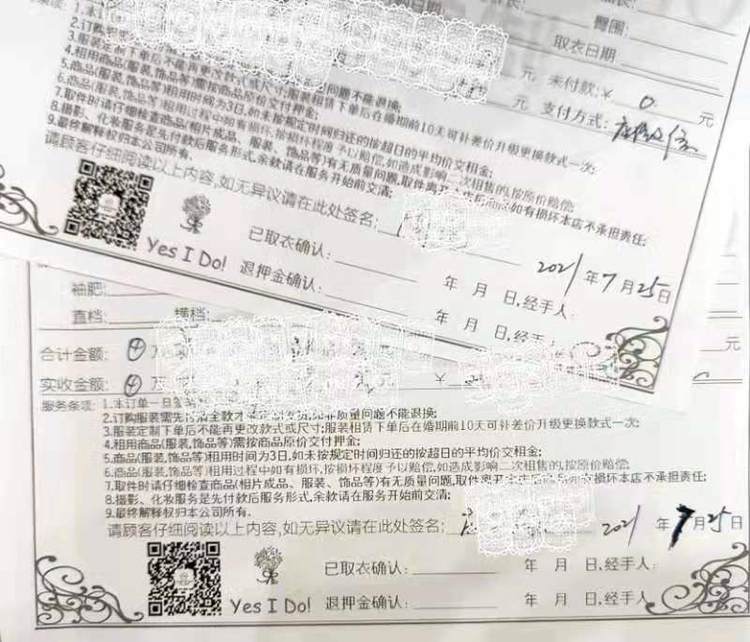 臀围:
取衣日期
元 未付款:¥ 0 元
元 支付方式:
问题不能退换;
3.服装定制下单后不能再更改款式或尺寸;服装租赁下单后在婚期前10天可补差价升级更换款式一次;
4.租用商品(服装,饰品等)需按商品原价交付押金;
5.商品(服装,饰品等)租用时间为3日,如未按规定时间归还的按超日的平均价交租金;
6.商品(服装,饰品等)租用过程中如有损坏,按损坏程度予以赔偿,如造成影响二次租售的,按原价赔偿;
7.取件时请仔细检查商品(相片成品、服装、饰品等)有无质量问题,取件离开本店后商品如有损坏本店不承担责任;
8.摄影、化妆服务是先付款后服务形式,余款请在服务开始前交清;
9.最终解释权归本公司所有.
请顾客仔细阅读以上内容,如无异议请在此处签名:
2021 年 7 月 25 日
Yes I Do!
已取衣确认: 年 月 日,经手人:
退押金确认: 年 月 日,经手
袖肥:
直档: 横档:
元
合计金额: 万
实收金额: 万 ¥
服务条项: 1.本订单一旦
2.订购服装需先付清全款才 非质量问题不能退换;
3.服装定制下单后不能再更改款式或尺寸;服装租赁下单后在婚期前10天可补差价升级更换款式一次;
4.租用商品(服装,饰品等)需按商品原价交付押金;
5.商品(服装,饰品等)租用时间为3日,如未按规定时间归还的按超日的平均价交租金;
6.商品(服装,饰品等)租用过程中如有损坏,按损坏程度予以赔偿,如造成影响二次租售的,按原价赔偿;
7.取件时请仔细检查商品(相片成品、服装、饰品等)有无质量问题,取件离开本店后商品如有损坏本店不承担责任;
8.摄影、化妆服务是先付款后服务形式,余款请在服务开始前交清;
9.最终解释权归本公司所有.
请顾客仔细阅读以上内容,如无异议请在此处签名: 2021 年 7 月 25 日
已取衣确认: 年 月 日,经手人:
Yes I Do! 退押金确认: 年 月 日,经手人